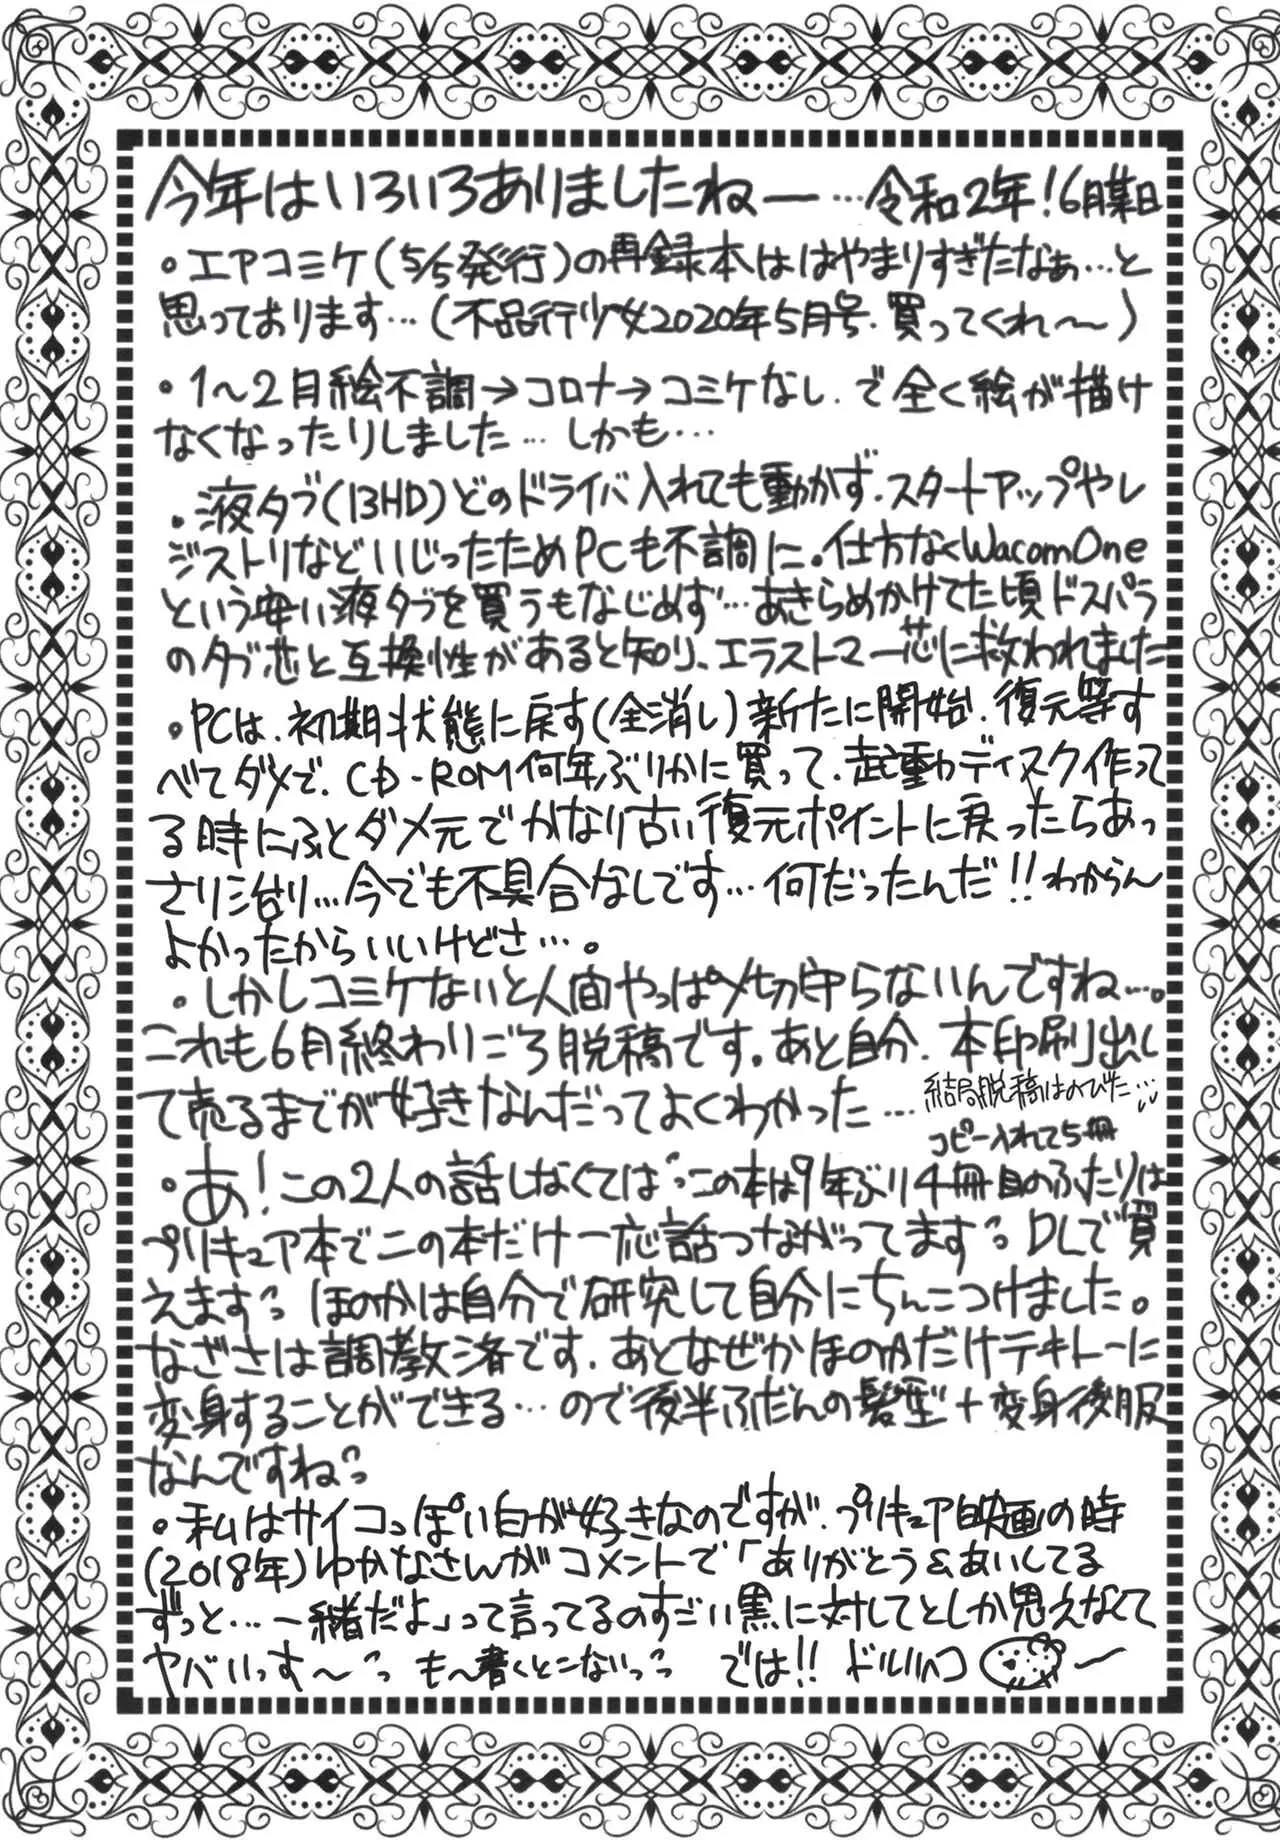 今年はいろいろありましたねー…令和2年！6月某日
・エアコミケ(5/5発行)の再録本ははやまりすぎたなぁ…と
思っております…(不品行少女2020年5月号.買ってくれ〜)
・1〜2月絵不調→コロナ→コミケなし.で全く絵が描け
なくなったりしました…しかも…
・液タブ(13HD)どのドライバ入れても動かず.スタートアップやレ
ジストリなどいじったためPCも不調に。仕方なくWacomOne
という安い液タブを買うもなじめず…あきらめかけてた頃ドスパラ
のタブ芯と互換性があると知り、エラストマー芯に救われました
・PCは、初期状態に戻す(全消し)新たに開始.復元等す
べてダメで、CD-ROM何年ぶりかに買って.起動ディスク作って
る時にふとダメ元でかなり古い復元ポイントに戻ったらあっ
さり治り…今でも不具合なしです…何だったんだ!!わからん
よかったからいいけどさ…。
・しかしコミケないと人間やっぱ〆切守らないんですね…。
これも6月終わりごろ脱稿です。あと自分.本印刷し出し
て売るまでが好きなんだってよくわかった…
結局脱稿はのびた…
コピー入れて5冊
・あ！この2人の話しなくては この本は9年ぶり4冊目のふたりは
プリキュア本でこの本だけ一応話つながってます DLで買
えます ほのかは自分で研究して自分にちんこつけました。
なぎさは調教済です.あとなぜかほのかだけテキトーに
変身することができる…ので後半ふだんの髪型+変身後服
なんですね
・私はサイコっぽい白が好きなのですが.プリキュア映画の時
(2018年)ゆかなさんがコメントで「ありがとう&あいしてる
ずっと…一緒だよ」って言ってるのすごい黒に対してとしか思えなくて
ヤバいっす〜 も〜書くとこないっ では!! ドルハコ